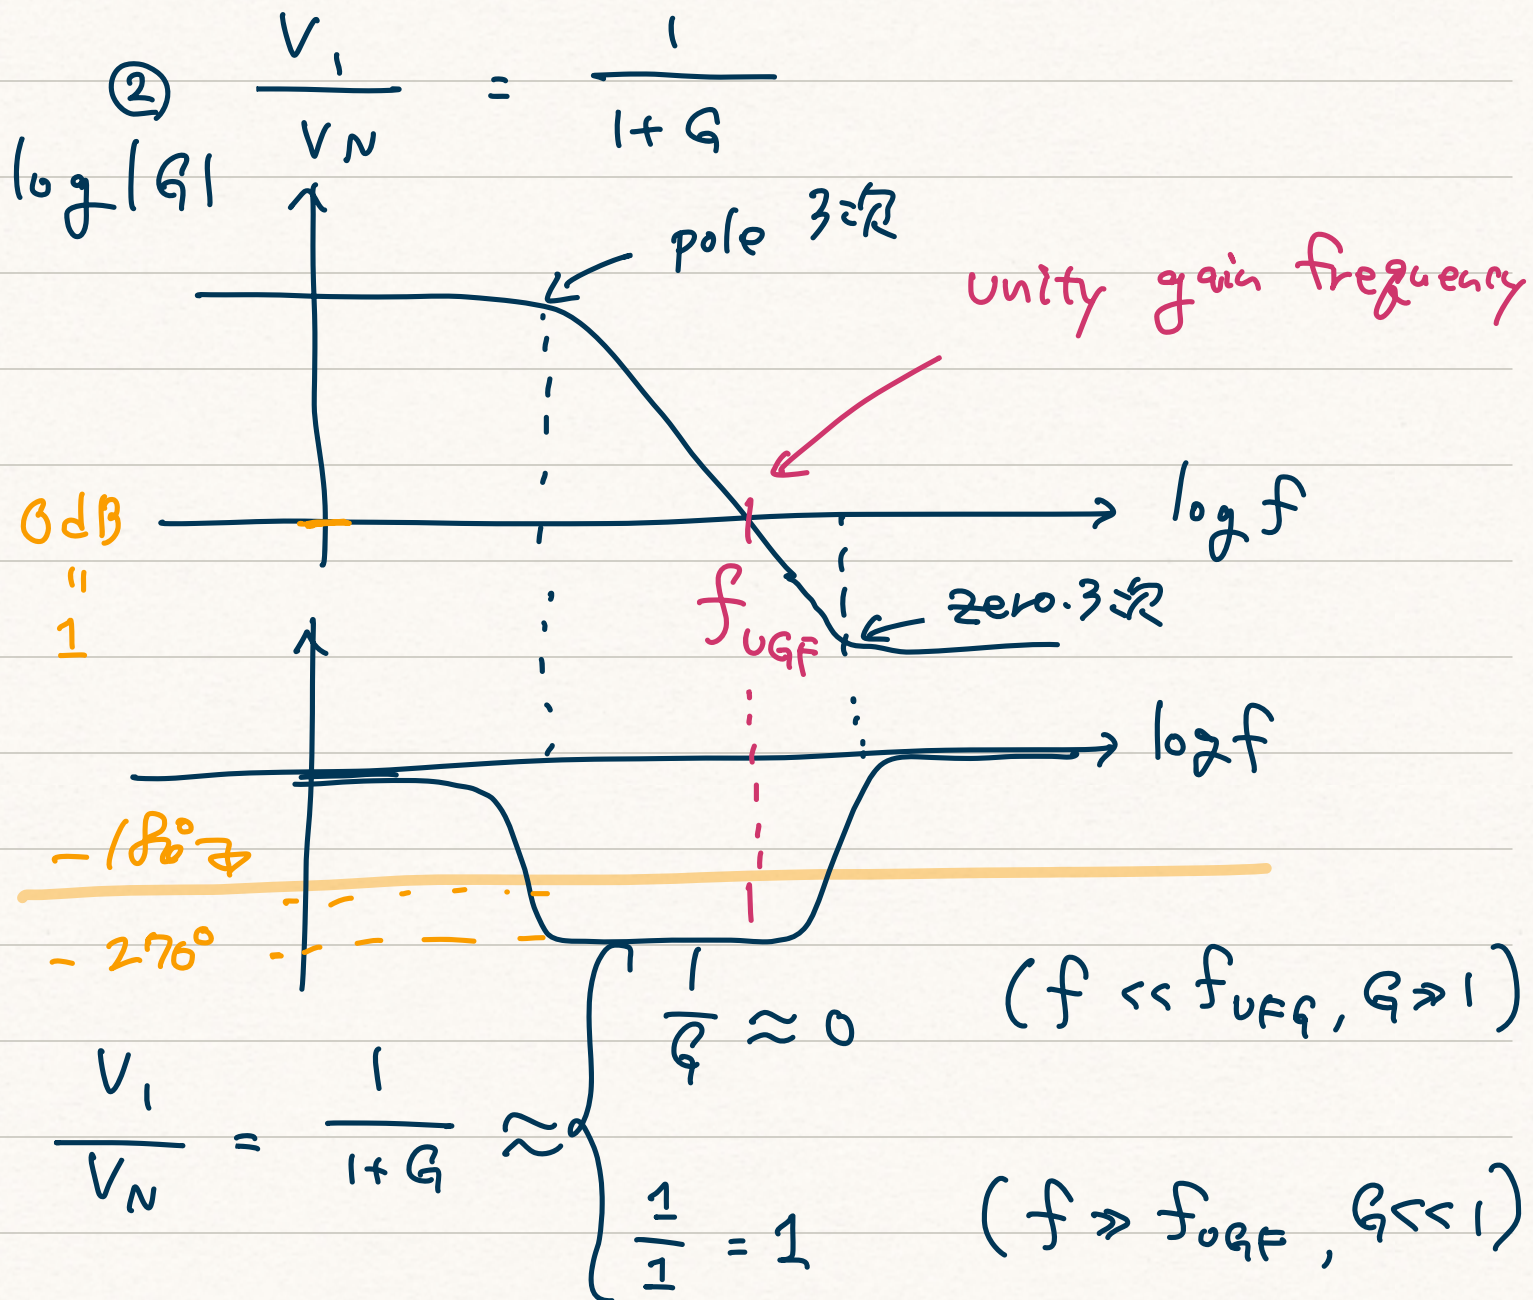 ② V₁/V_N = 1/(1+G)
log|G|
pole 3次
unity gain frequency
0dB
"
1
log f
f_UGF
zero.3次
log f
-180°
-270°
V₁/V_N = 1/(1+G) ≈ { 1/G ≈ 0 (f << f_UFG, G >> 1)
1/1 = 1 (f >> f_UGF, G << 1)